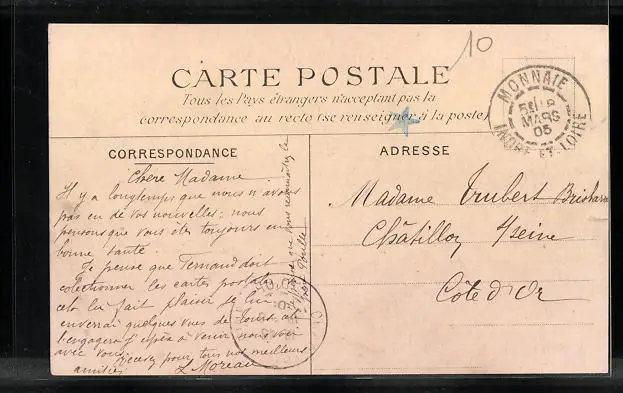 10
CARTE POSTALE
Tous les Pays étrangers n'acceptant pas la
correspondance au recto (se renseigner à la poste)
MONNAIE
MARS
05
INDRE-ET-LOIRE
CORRESPONDANCE
ADRESSE
Chère Madame
Il y a longtemps que nous n'avons
pas eu de vos nouvelles; nous
pensons que vous êtes toujours en
bonne santé.
Je pense que Fernand doit
collectionner les cartes postales
cela lui fait plaisir je lui
enverrai quelques vues de Tours, cela
l'engagera j'espère à venir nous voir
avec vous
Recevez pour tous nos meilleures
amitiés
L Moreau
que vous reconnaîtrez la
Madame Trubert
Châtillon s/seine
Côte d'Or